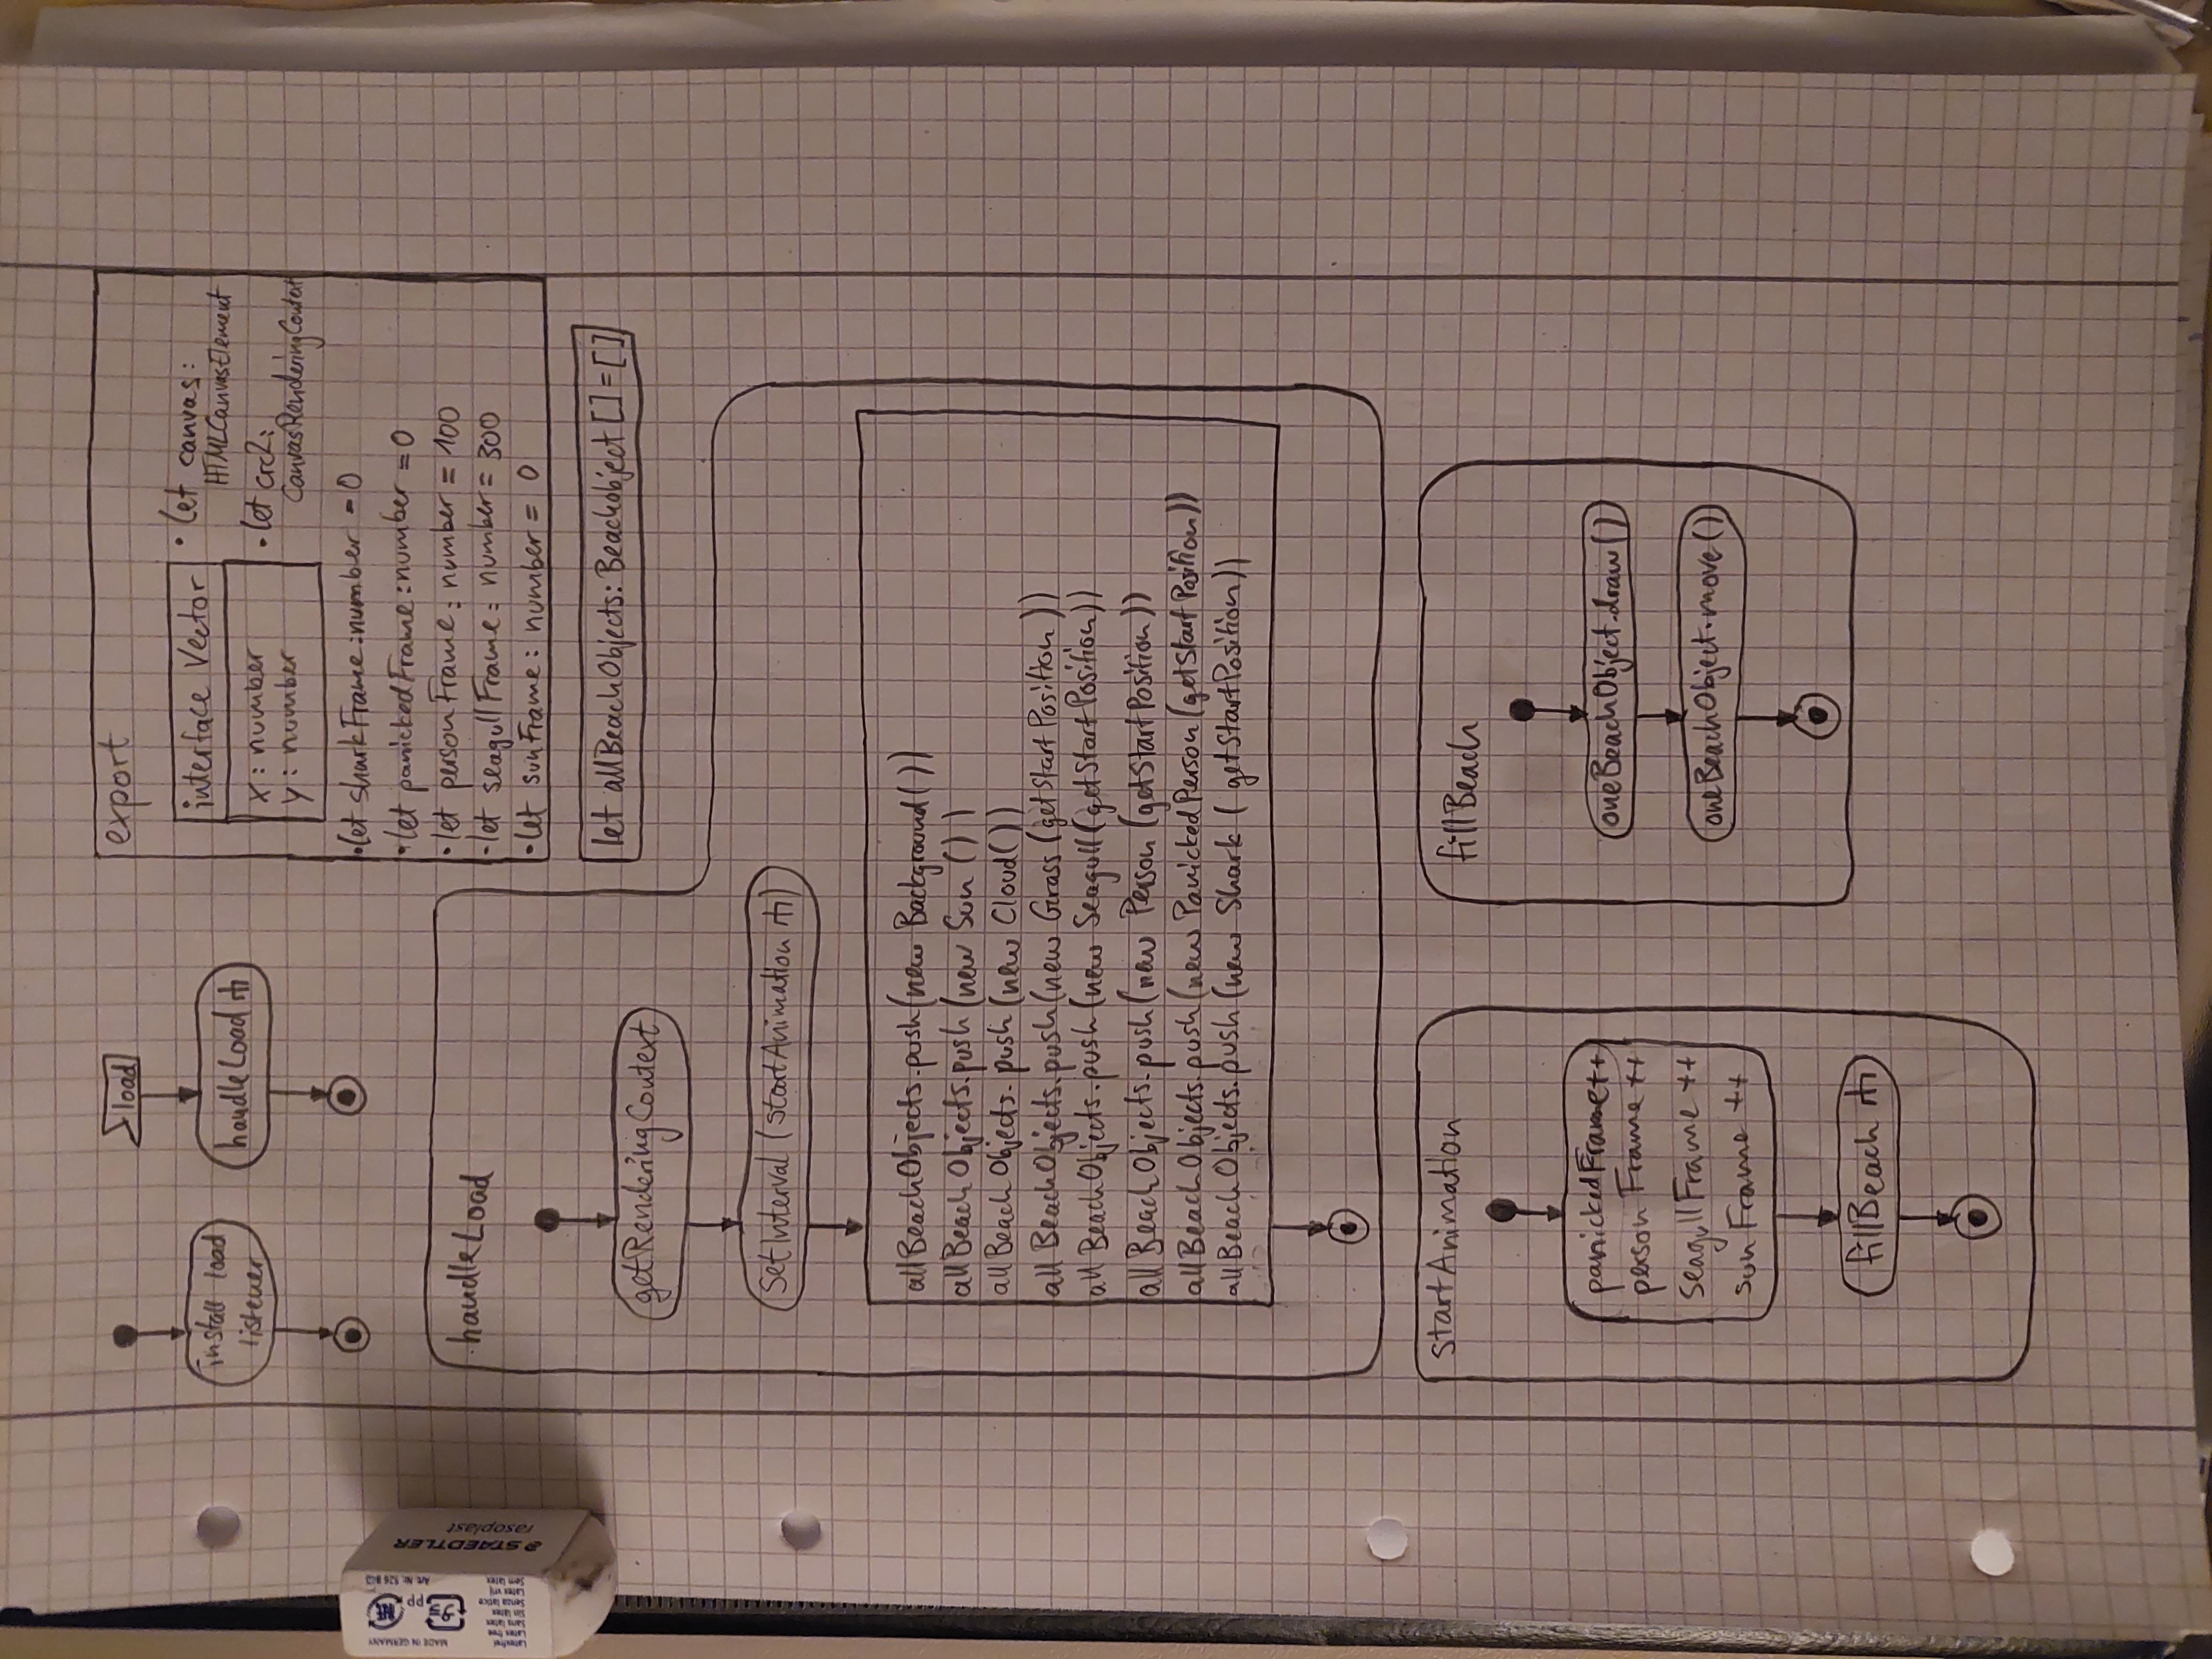 load
install load
listener
handleLoad
export
interface Vector
x: number
y: number
• let canvas:
HTMLCanvasElement
• let crc2:
CanvasRenderingContext
• let sharkFrame: number = 0
• let panickedFrame: number = 0
• let personFrame: number = 100
• let seagullFrame: number = 300
• let sunFrame: number = 0
let allBeachObjects: Beachobject [] = []
handleLoad
getRenderingContext
SetInterval (startAnimation)
allBeachObjects.push(new Background())
allBeachObjects.push(new Sun())
allBeachObjects.push(new Cloud())
allBeachObjects.push(new Grass(getStartPosition))
allBeachObjects.push(new Seagull(getStartPosition))
allBeachObjects.push(new Person(getStartPosition))
allBeachObjects.push(new PanickedPerson(getStartPosition))
allBeachObjects.push(new Shark(getStartPosition))
startAnimation
panickedFrame++
personFrame++
seagullFrame++
sunFrame++
fillBeach
fillBeach
oneBeachObject.draw()
oneBeachObject.move()
MADE IN GERMANY
PP
Art.-Nr. 526 B20
STAEDTLER
rasoplast
Latexfrei
Latex free
Sans latex
Sin látex
Senza latice
Latex vrij